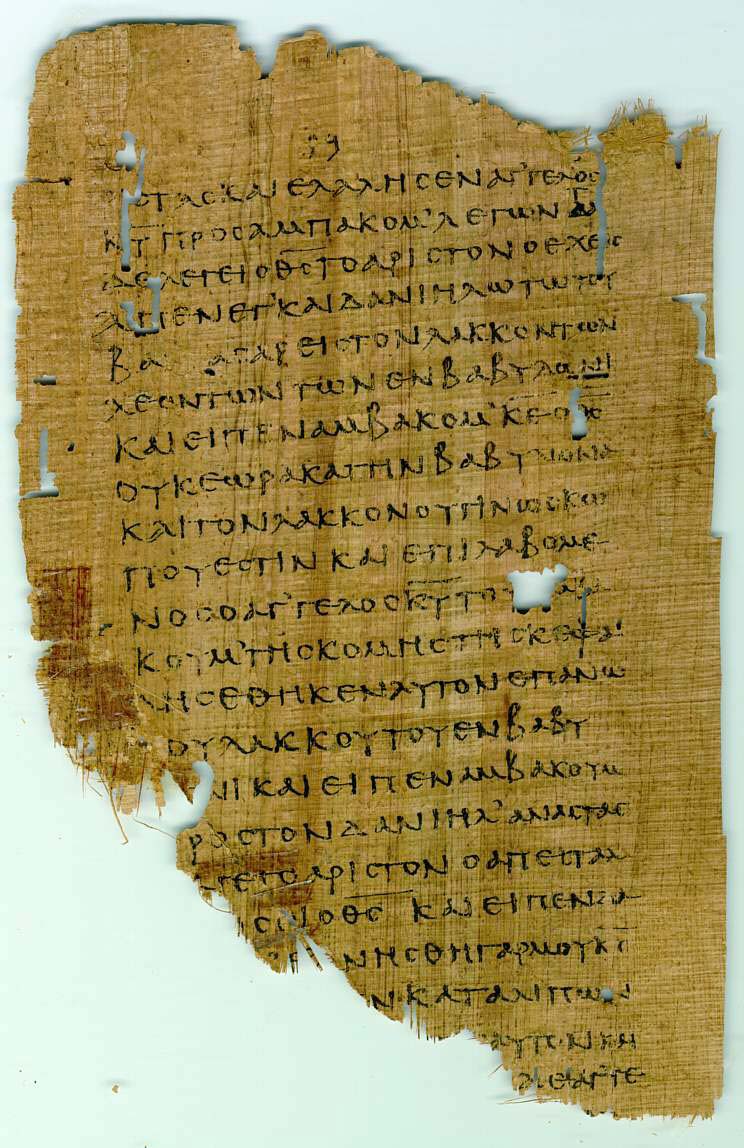 ΟΤΑΣΚΑΙΕΛΑΛΗΣΕΝΑΓ᾽ΓΕΛΟΣ
Κ̅Υ̅ΠΡΟΣΑΜΠΑΚΟΜ᾽ΛΕΓΩΝ
ΔΕΛΕΓΕΙΟΘ̅Σ̅ΤΟΑΡΙΣΤΟΝΟΕΧΕΙΣ
ΑΠΕΝΕΓΚΑΙΔΑΝΙΗΛ
ΕΙΣΤΟΝΛΑΚΚΟΝΤΩΝ
ΛΕΟΝΤΩΝΤΩΝΕΝΒΑΒΥΛΩΝΙ
ΚΑΙΕΙΠΕΝΑΜΒΑΚΟΜ᾽Κ̅Ε̅Ο̅Θ̅Σ̅
ΟΥΚΕΩΡΑΚΑΤΗΝΒΑΒΥΛΩΝΑ
ΚΑΙΤΟΝΛΑΚΚΟΝΟΥΓΙΝΩΣΚΩ
ΠΟΥΕΣΤΙΝΚΑΙΕΠΙΛΑΒΟΜΕ
ΝΟΣΟΑΓ᾽ΓΕΛΟΣΚ̅Υ̅ΤΟΥ
ΚΟΥΜ᾽ΤΗΣΚΟΜΗΣΤΗΣΚΕΦΑ
ΛΗΣΕΘΗΚΕΝΑΥΤΟΝΕΠΑΝΩ
ΟΥΛΑΚΚΟΥΤΟΥΕΝΒΑΒΥ
ΝΙΚΑΙΕΙΠΕΝΑΜΒΑΚΟΥΜ
ΡΟΣΤΟΝΔΑΝΙΗΛ᾽ΑΝΑΣΤΑΣ
ΓΕΤΟΑΡΙΣΤΟΝΟΑΠΕΣΤΑΛ
ΣΟΙΟΘ̅Σ̅ΚΑΙΕΙΠΕΝΔΑ
ΝΗΣΘΗΓΑΡΜΟΥΚ̅Σ̅
ΝΚΑΤΑΛΙΠΩΝ
ΑΥΤΟΝΚΑΙ
ΑΓ᾽ΓΕ